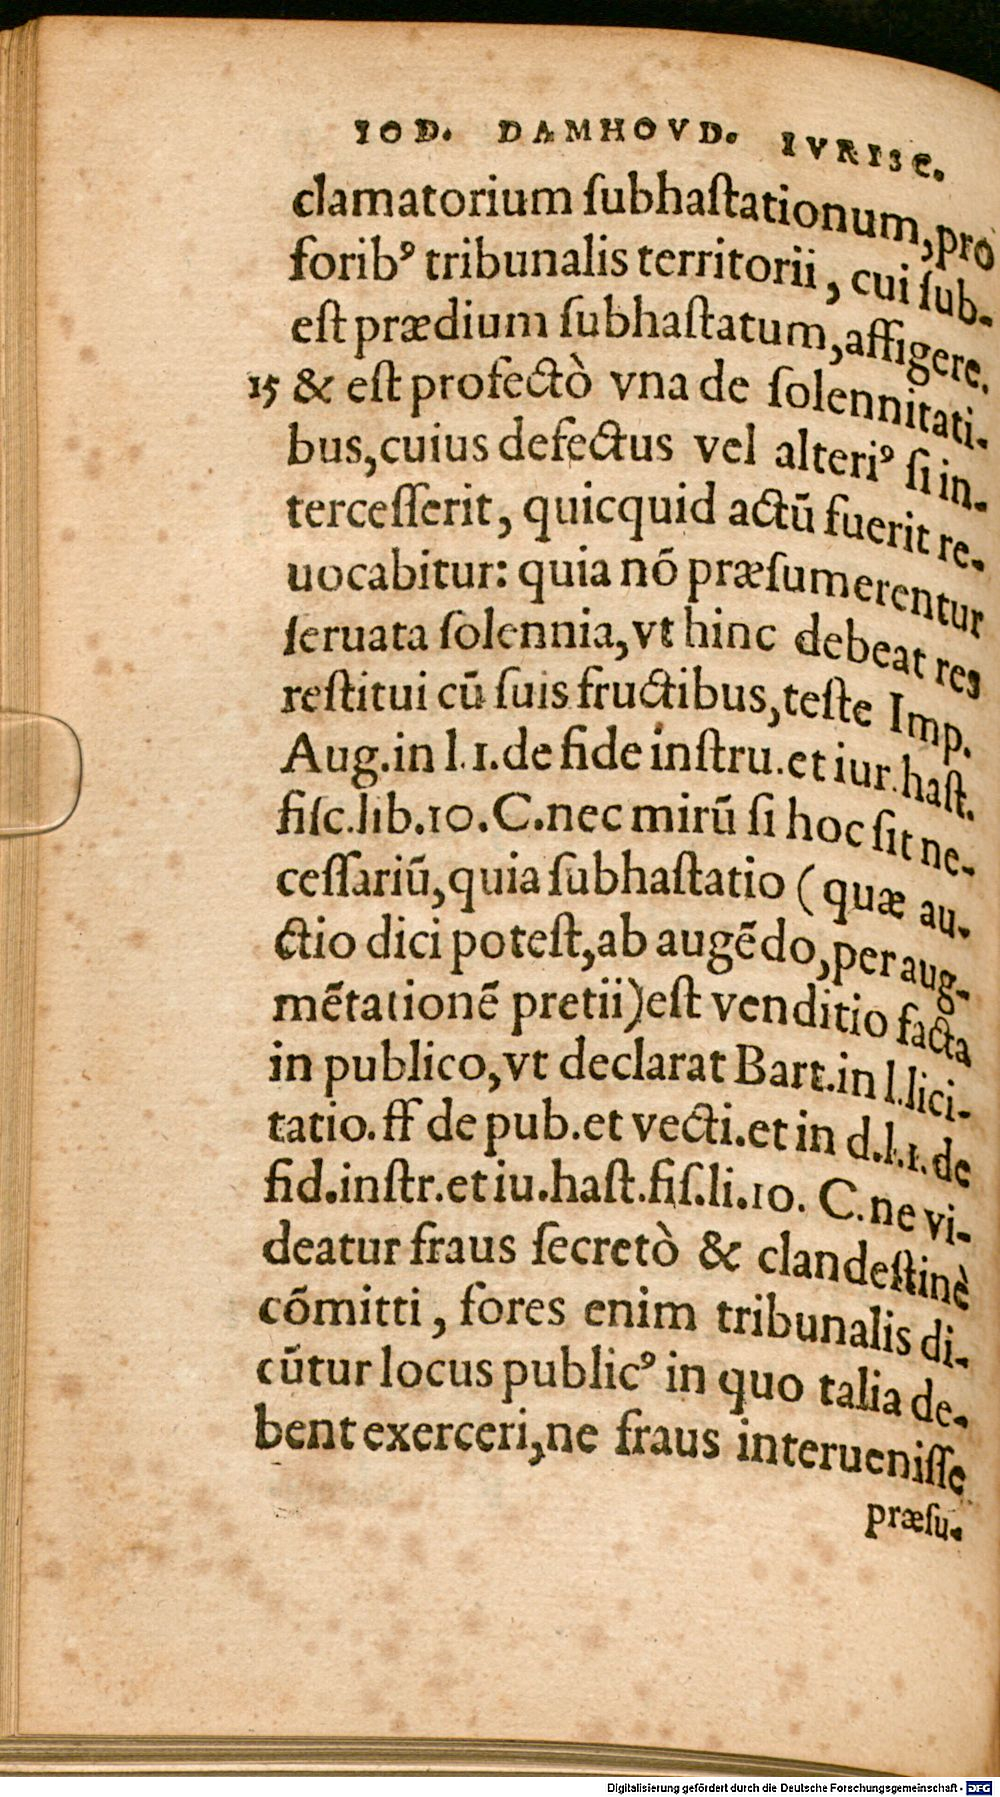 IOD. DAMHOVD. IVRISC.
clamatorium ſubhaſtationum, prò
foribꝰ tribunalis territorii, cui ſub-
eſt prædium ſubhaſtatum, affigere.
15 & eſt profectò vna de ſolennitati-
bus, cuius defectus vel alteriꝰ ſi in-
terceſſerit, quicquid actū fuerit re-
uocabitur: quia nō præſumerentur
ſeruata ſolennia, vt hinc debeat res
reſtitui cū ſuis fructibus, teſte Imp.
Aug. in l. 1. de fide inſtru. et iur. haſt.
fiſc. lib. 10. C. nec mirū ſi hoc ſit ne-
ceſſariū, quia ſubhaſtatio (quæ au-
ctio dici poteſt, ab augēdo, per aug-
mētationē pretii) eſt venditio facta
in publico, vt declarat Bart. in l. lici-
tatio. ff de pub. et vecti. et in d. l. 1. de
fid. inſtr. et iu. haſt. fiſ. li. 10. C. ne vi-
deatur fraus ſecretò & clandeſtinè
cōmitti, fores enim tribunalis di-
cūtur locus publicꝰ in quo talia de-
bent exerceri, ne fraus interueniſſe
præſu-
Digitalisierung gefördert durch die Deutsche Forschungsgemeinschaft - DFG